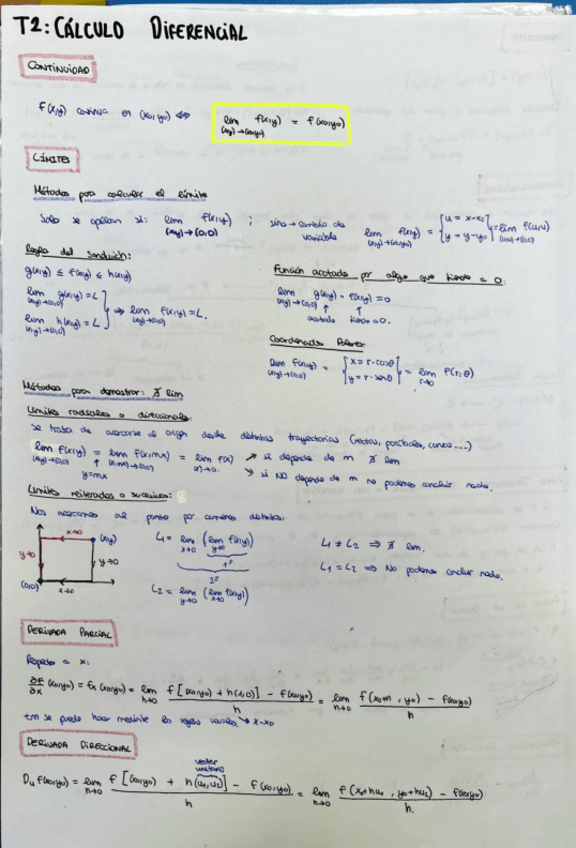 T2: CÁLCULO DIFERENCIAL
CONTINUIDAD
f(x,y) continua en (x₀,y₀) ⇔ lim (x,y)→(x₀,y₀) f(x,y) = f(x₀,y₀)
LÍMITES
Métodos para calcular el límite
Solo se aplican si: lim (x,y)→(0,0) f(x,y) ; sino → cambio de variable lim (x,y)→(x₀,y₀) f(x,y) = {u = x-x₀ y = y-y₀} = lim (u,v)→(0,0) f(u,v)
Regla del Sandwich:
g(x,y) ≤ f(x,y) ≤ h(x,y)
lim (x,y)→(0,0) g(x,y) = L
lim (x,y)→(0,0) h(x,y) = L } ⇒ lim (x,y)→(0,0) f(x,y) = L.
Función acotada por algo que tiende a 0:
lim (x,y)→(0,0) g(x,y) · f(x,y) = 0
↑ acotada ↑ tiende a 0.
Coordenadas Polares
lim (x,y)→(0,0) f(x,y) = {x = r·cosθ y = r·senθ} = lim r→0 f(r,θ)
Métodos para demostrar: ∄ lim
Límites radiales o direccionales
Se trata de acercarse al origen desde distintas trayectorias (rectas, parábolas, curvas....)
lim (x,y)→(0,0) f(x,y) = lim (x,mx)→(0,0) f(x,mx) = lim (x)→0 f(x) ↗ si depende de m ∄ lim
↑ y=mx ↘ si NO depende de m no podemos concluir nada.
Límites reiterados o sucesivos:
Nos acercamos al punto por caminos distintos:
x→0 (x,y) y→0 y→0 (0,0) x→0
L₁ = lim x→0 (lim y→0 f(x,y)) 1º 2º
L₁ ≠ L₂ ⇒ ∄ lim.
L₁ = L₂ ⇒ No podemos concluir nada.
L₂ = lim y→0 (lim x→0 f(x,y))
DERIVADA PARCIAL
Respecto a x:
∂f/∂x (x₀,y₀) = fx (x₀,y₀) = lim h→0 f[(x₀,y₀) + h(1,0)] - f(x₀,y₀) / h = lim h→0 f(x₀+h, y₀) - f(x₀,y₀) / h
tm se puede hacer mediante las reglas x-x₀
DERIVADA DIRECCIONAL
vector unitario
Du f(x₀,y₀) = lim h→0 f[(x₀,y₀) + h(u₁,u₂)] - f(x₀,y₀) / h = lim h→0 f(x₀+hu₁, y₀+hu₂) - f(x₀,y₀) / h.